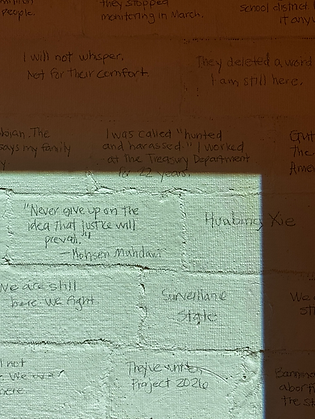 people.
they stopped
monitoring in March.
school district
it any
I will not whisper,
Not for their comfort.
They deleted a word
I am still here.
The
says my family
I was called "hunted
and harassed." I worked
at The Treasury Department
for 22 years.
The
"Never give up on the
idea that justice will
prevail."
— Mohsen Mahdawi
Huabing Xie
We are still
here. We fight
Surveillance
State
not
We
here.
Project 2026
the